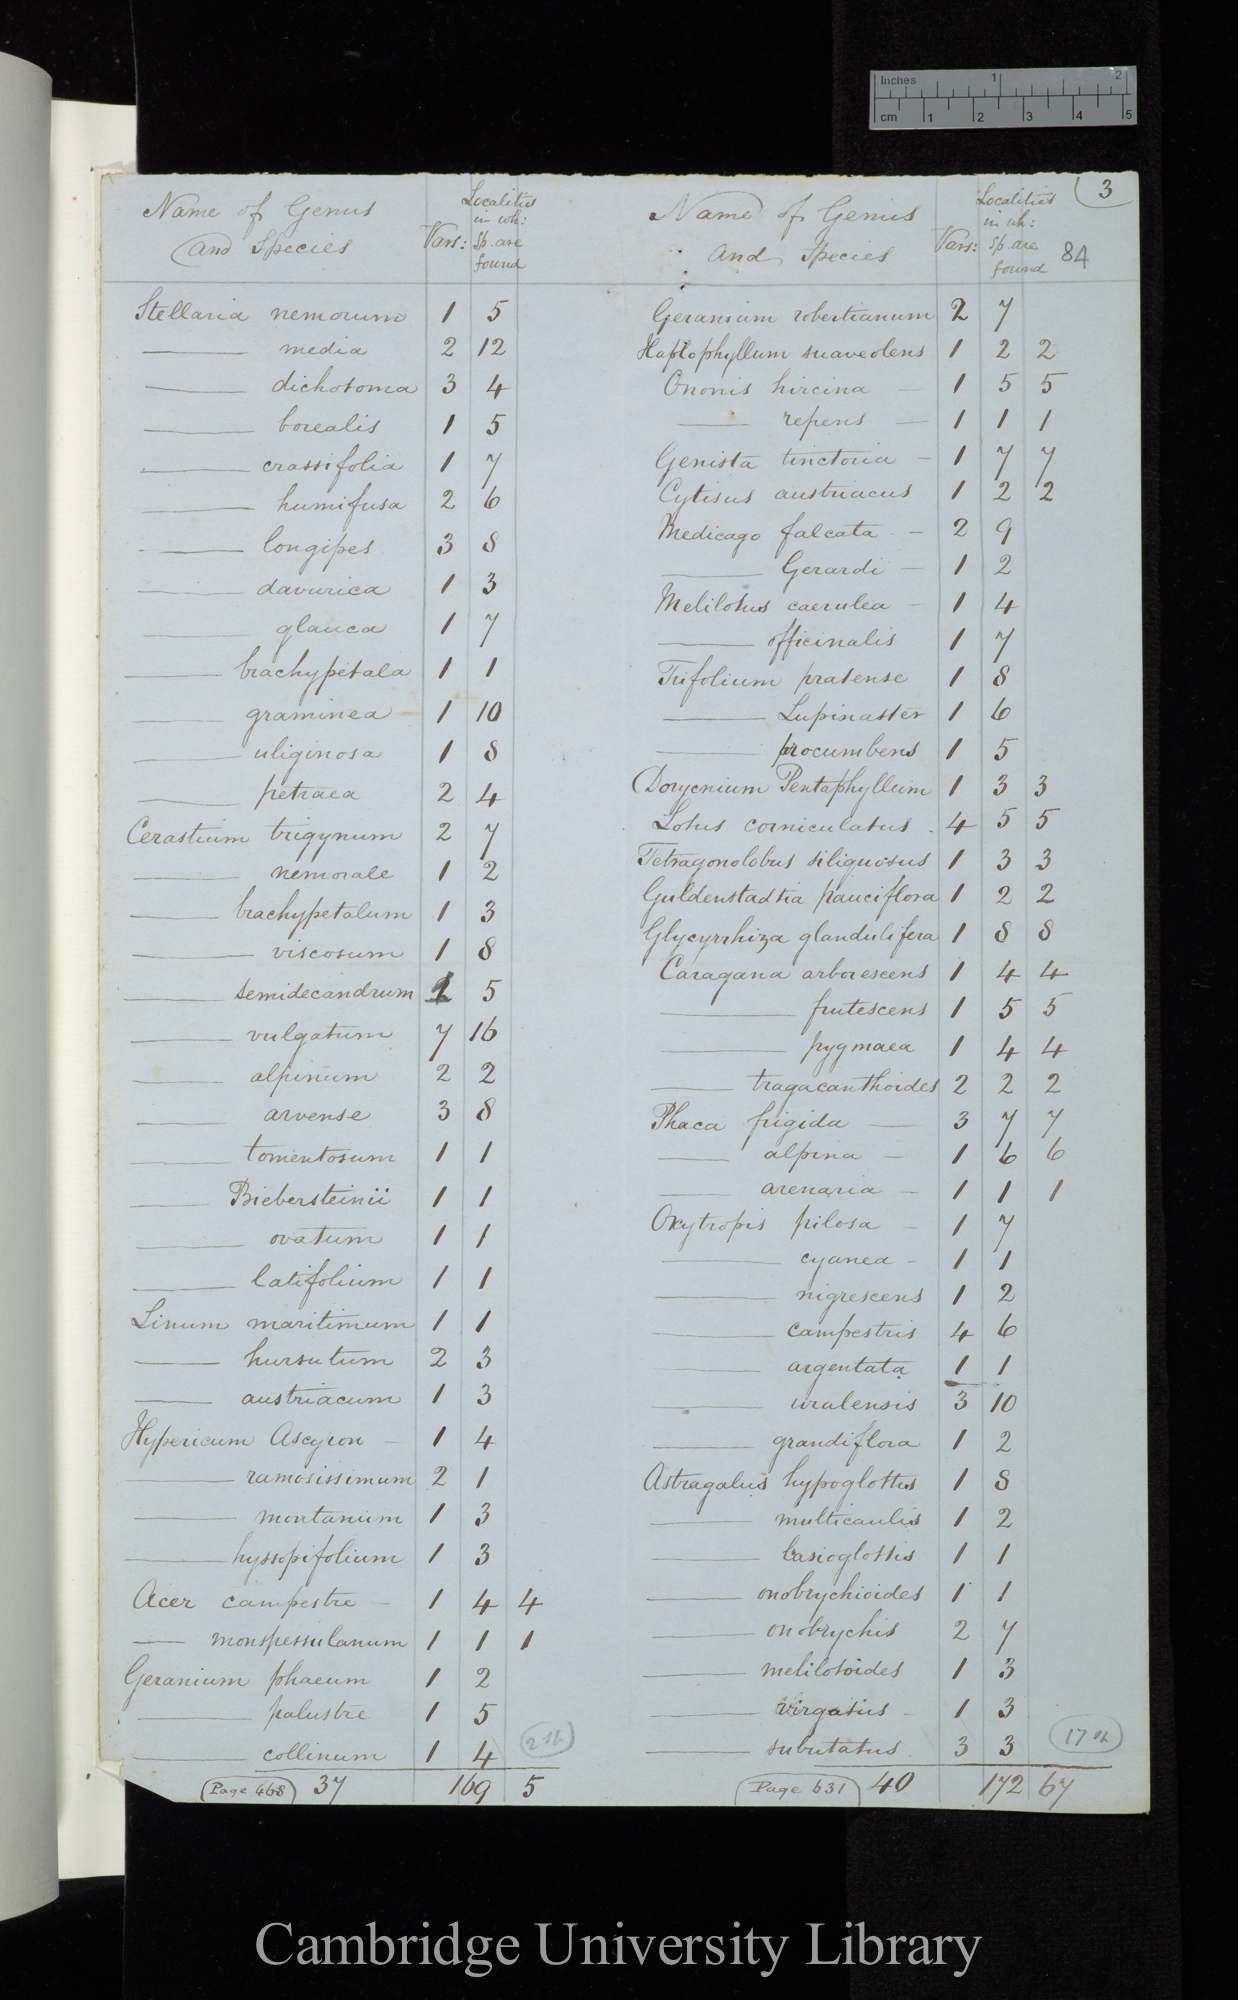 Inches 1 2
cm 1 2 3 4 5
3
84
Name of Genus
and Species
Vars:
Localities
in wh:
Sp. are
found
Stellaria nemorum 1 5
—— media 2 12
—— dichotoma 3 4
—— borealis 1 5
—— crassifolia 1 7
—— humifusa 2 6
—— longipes 3 8
—— davurica 1 3
—— glauca 1 7
—— brachypetala 1 1
—— graminea 1 10
—— uliginosa 1 8
—— petraea 2 4
Cerastium trigynum 2 7
—— nemorale 1 2
—— brachypetalum 1 3
—— viscosum 1 8
—— semidecandrum 1 5
—— vulgatum 7 16
—— alpinum 2 2
—— arvense 3 8
—— tomentosum 1 1
—— Biebersteinii 1 1
—— ovatum 1 1
—— latifolium 1 1
Linum maritimum 1 1
—— hursutum 2 3
—— austriacum 1 3
Hypericum Ascyron – 1 4
—— ramosissimum 2 1
—— montanum 1 3
—— hyssopifolium 1 3
Acer campestre – 1 4 4
—— monspessulanum 1 1 1
Geranium phaeum 1 2
—— palustre 1 5
—— collinum 1 4
2 sp.
Page 468 37 169 5
Name of Genus
and Species
Vars:
Localities
in wh:
Sp. are
found
Geranium robertianum 2 7
Haplophyllum suaveolens 1 2 2
Ononis hircina – 1 5 5
—— repens – 1 1 1
Genista tinctoria – 1 7 7
Cytisus austriacus 1 2 2
Medicago falcata – 2 9
—— Gerardi – 1 2
Melilotus caerulea – 1 4
—— officinalis 1 7
Trifolium pratense 1 8
—— Lupinaster 1 6
—— procumbens 1 5
Dorycnium Pentaphyllum 1 3 3
Lotus corniculatus . 4 5 5
Tetragonolobus siliquosus 1 3 3
Guldenstadtia pauciflora 1 2 2
Glycyrrhiza glandulifera 1 8 8
Caragana arborescens 1 4 4
—— frutescens 1 5 5
—— pygmaea 1 4 4
—— tragacanthoides 2 2 2
Phaca frigida — 3 7 7
—— alpina – 1 6 6
—— arenaria – 1 1 1
Oxytropis pilosa – 1 7
—— cyanea – 1 1
—— nigrescens 1 2
—— campestris 4 6
—— argentata 1 1
—— uralensis 3 10
—— grandiflora 1 2
Astragalus hypoglottis 1 8
—— multicaulis 1 2
—— lasioglottis 1 1
—— onobrychioides 1 1
—— onobrychis 2 7
—— melilotoides 1 3
—— virgatus – 1 3
—— subutatus 3 3
17 sp.
Page 631 40 172 67
Cambridge University Library